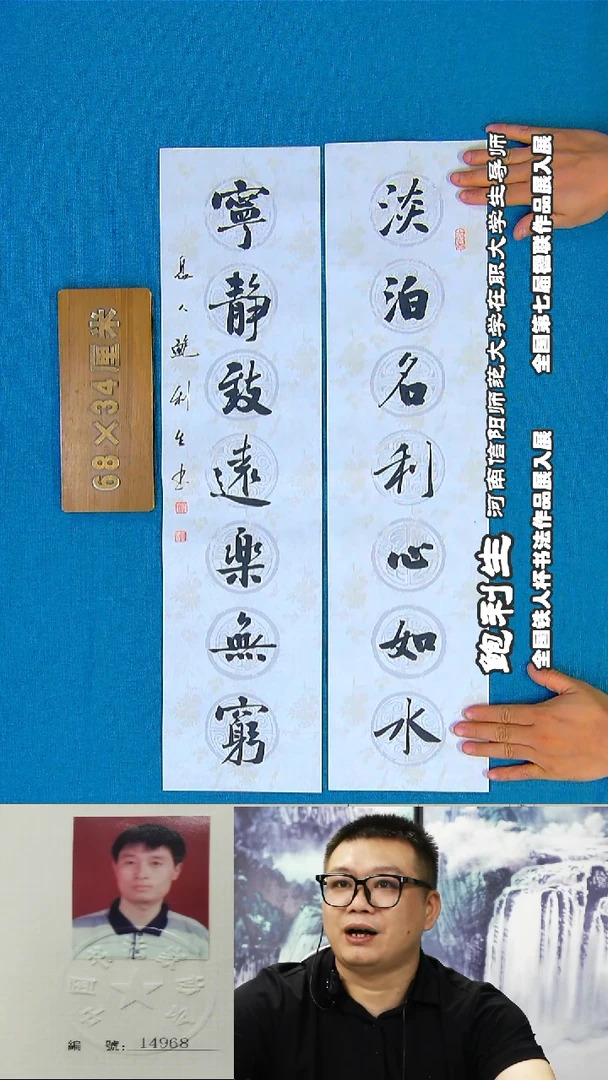 淡泊名利心如水
寧靜致遠樂無窮
息人鮑利生书
68×34厘米
鲍利生
河南信阳师范大学在职大学生导师
全国第七届楹联作品展入展
全国铁人杯书法作品展入展
編 號: 14968